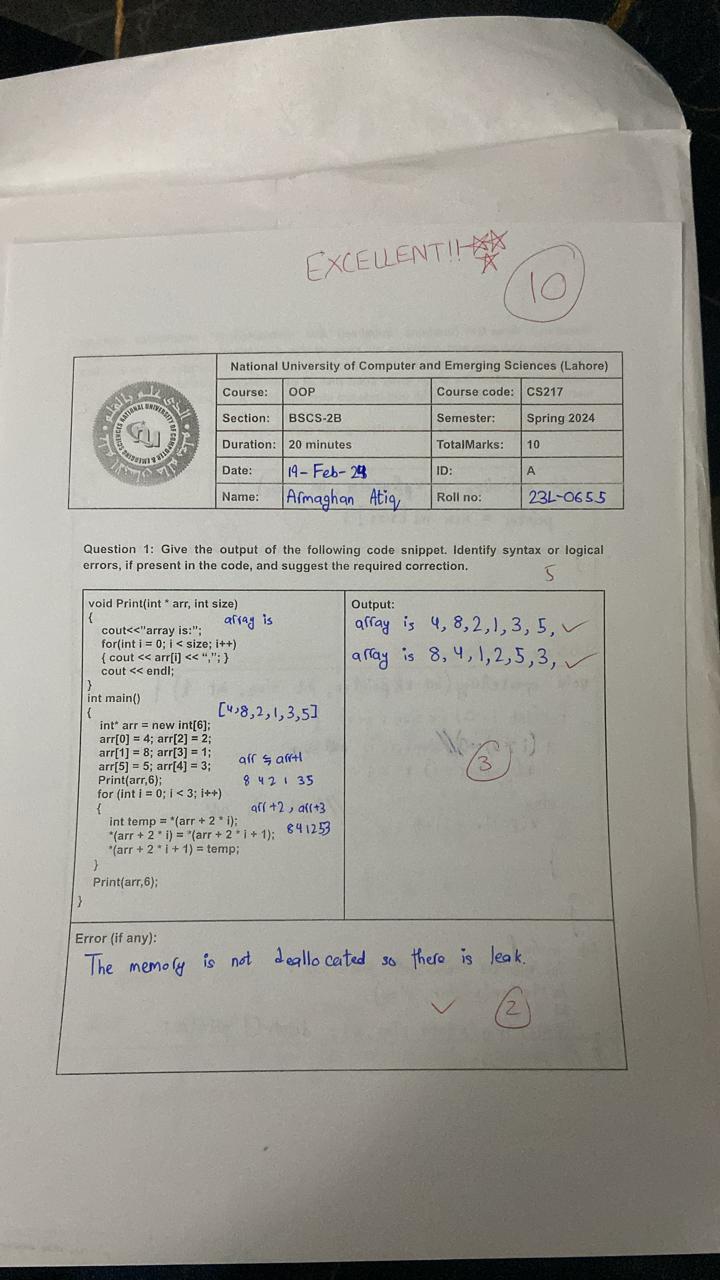 EXCELLENT!!
10
National University of Computer and Emerging Sciences (Lahore)
Course: OOP Course code: CS217
Section: BSCS-2B Semester: Spring 2024
Duration: 20 minutes TotalMarks: 10
Date: 19-Feb-24 ID: A
Name: Armaghan Atiq Roll no: 23L-0655
Question 1: Give the output of the following code snippet. Identify syntax or logical
errors, if present in the code, and suggest the required correction.
5
void Print(int * arr, int size)
{
array is
cout<<"array is:";
for(int i = 0; i < size; i++)
{ cout << arr[i] << ","; }
cout << endl;
}
int main()
{
[4,8,2,1,3,5]
int* arr = new int[6];
arr[0] = 4; arr[2] = 2;
arr[1] = 8; arr[3] = 1;
arr[5] = 5; arr[4] = 3;
arr arr+1
Print(arr,6);
8 4 2 1 3 5
for (int i = 0; i < 3; i++)
{
arr+2, arr+3
int temp = *(arr + 2 * i);
*(arr + 2 * i) = *(arr + 2 * i + 1);
8 4 1 2 5 3
*(arr + 2 * i + 1) = temp;
}
Print(arr,6);
}
Output:
array is 4,8,2,1,3,5,
array is 8,4,1,2,5,3,
3
Error (if any):
The memory is not deallocated so there is leak.
2